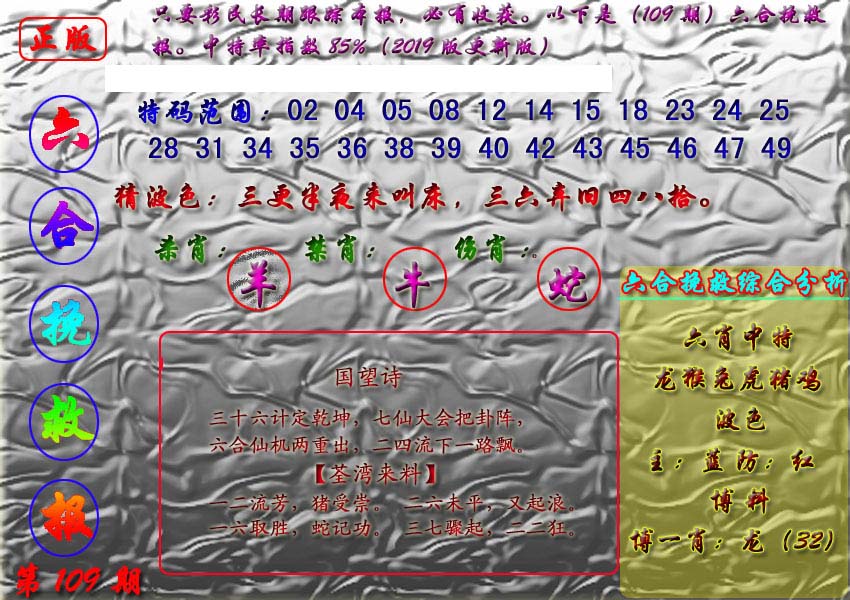 只要彩民长期跟踪本报，必有收获。以下是（109期）六合挽救
报。中特率指数85%（2019版更新版）
正版
六
合
挽
救
报
第109期
特码范围：02 04 05 08 12 14 15 18 23 24 25
28 31 34 35 36 38 39 40 42 43 45 46 47 49
猜波色：三更半夜来叫床，三六弃旧四八拾。
杀肖：羊 禁肖：牛 伤肖：蛇
国望诗
三十六计定乾坤，七仙大会把卦阵，
六合仙机两重出，二四流下一路飘。
【荃湾来料】
一二流芳，猪受崇。 二六未平，又起浪。
一六取胜，蛇记功。 三七骤起，二二狂。
六合挽救综合分析
六肖中特
龙猴兔虎猪鸡
波色
主：蓝防：红
博料
博一肖：龙（32）